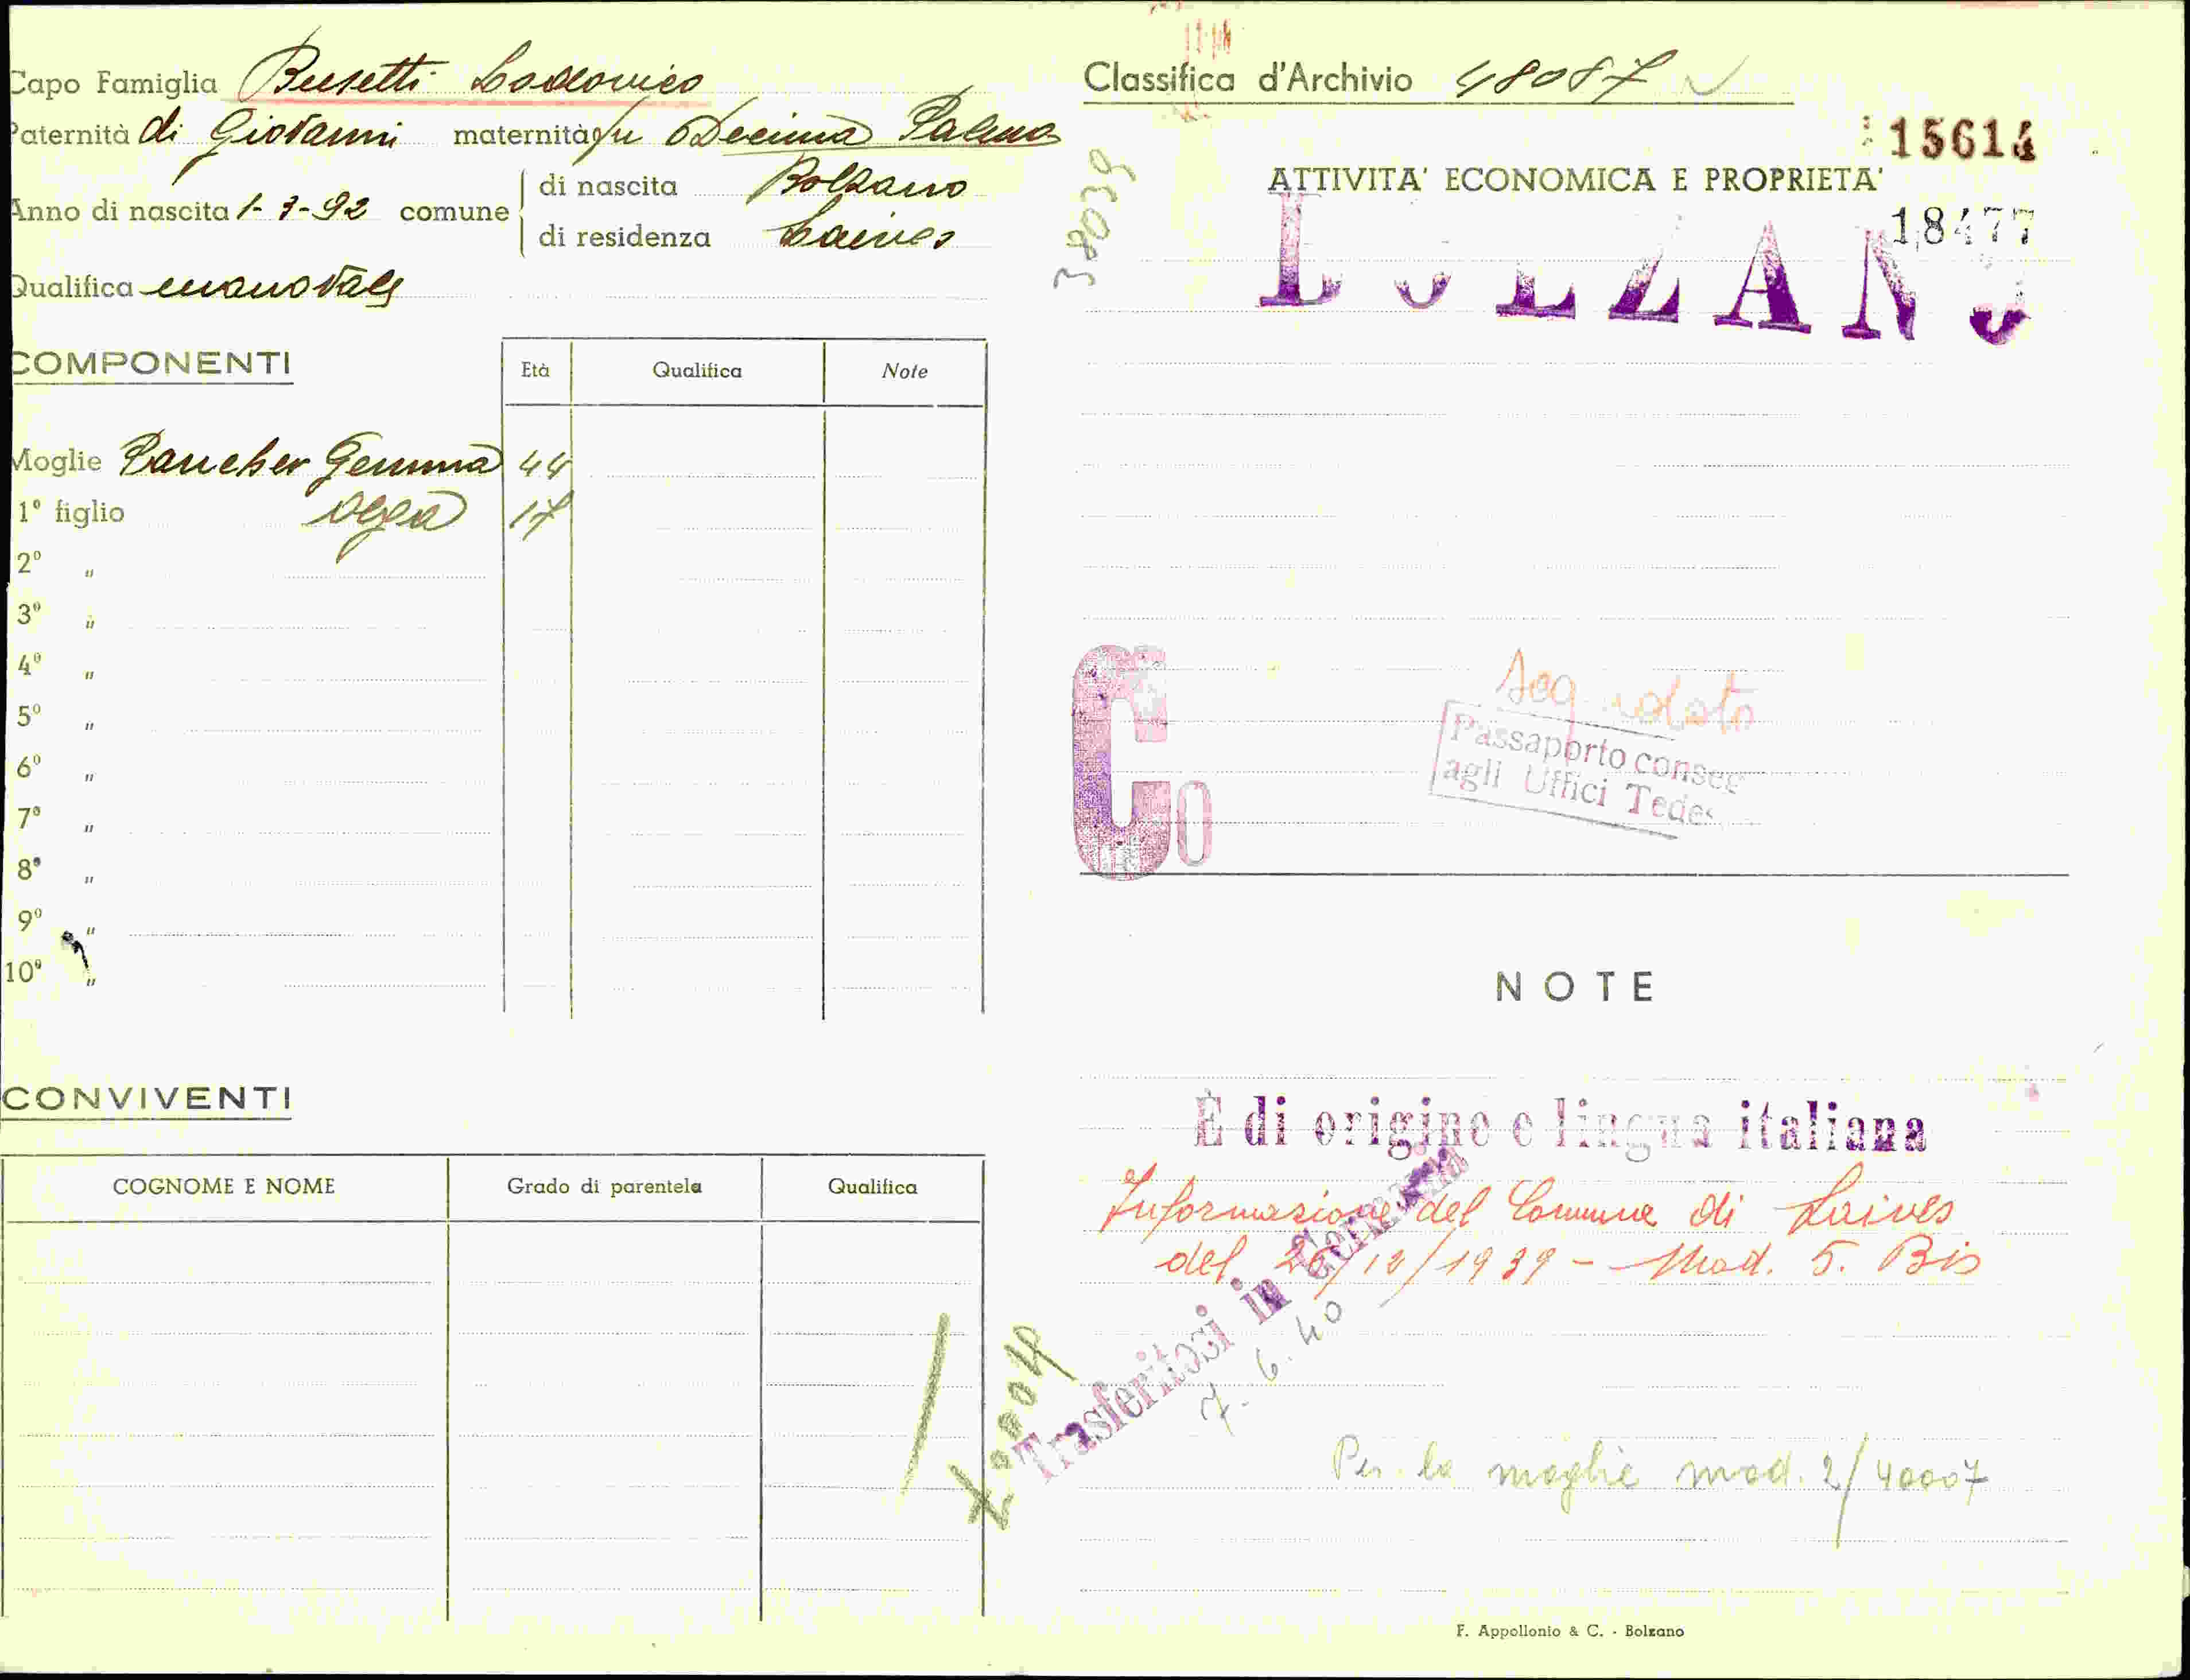 Capo Famiglia Busetti Lodovico
Paternità di Giovanni maternità fu Decima Palma
Anno di nascita 1-3-92 comune di nascita Bolzano
di residenza Laives
Qualifica manovale
COMPONENTI
Età Qualifica Note
Moglie Paucher Gemma 44
1º figlio Olga 17
2º "
3º "
4º "
5º "
6º "
7º "
8º "
9º "
10º "
CONVIVENTI
COGNOME E NOME Grado di parentela Qualifica
Classifica d'Archivio 48087
15614
38039
ATTIVITA' ECONOMICA E PROPRIETA'
18477
BOLZANO
Co
Passaporto conseg
agli Uffici Tedes
NOTE
È di origine e lingua italiana
Informazione del Comune di Laives
del 26/12/1939 - Mod. 5. Bis
Trasferitosi in Germania
7.6.40
40007
Per la moglie mod. 2/40007
F. Appollonio & C. - Bolzano